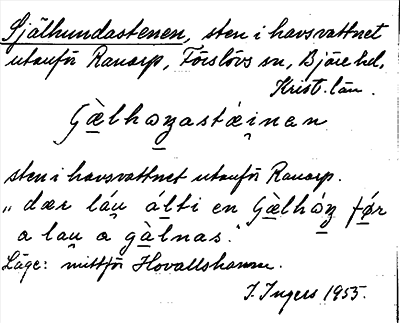 Själhundastenen, sten i havsvattnet
utanför Ranarp, Förslövs sn, Bjäre hd,
Krist. län.
Gæ̱lhơṉastæ̱i̯nen
sten i havsvattnet utanför Ranarp.
„dær láu̯ á̱lti en Gæ̱lhớṉ fø̱r
a lau̯ a gà̱lnas.“
Läge: mittför Hovallshamn.
I. Ingers 1955.